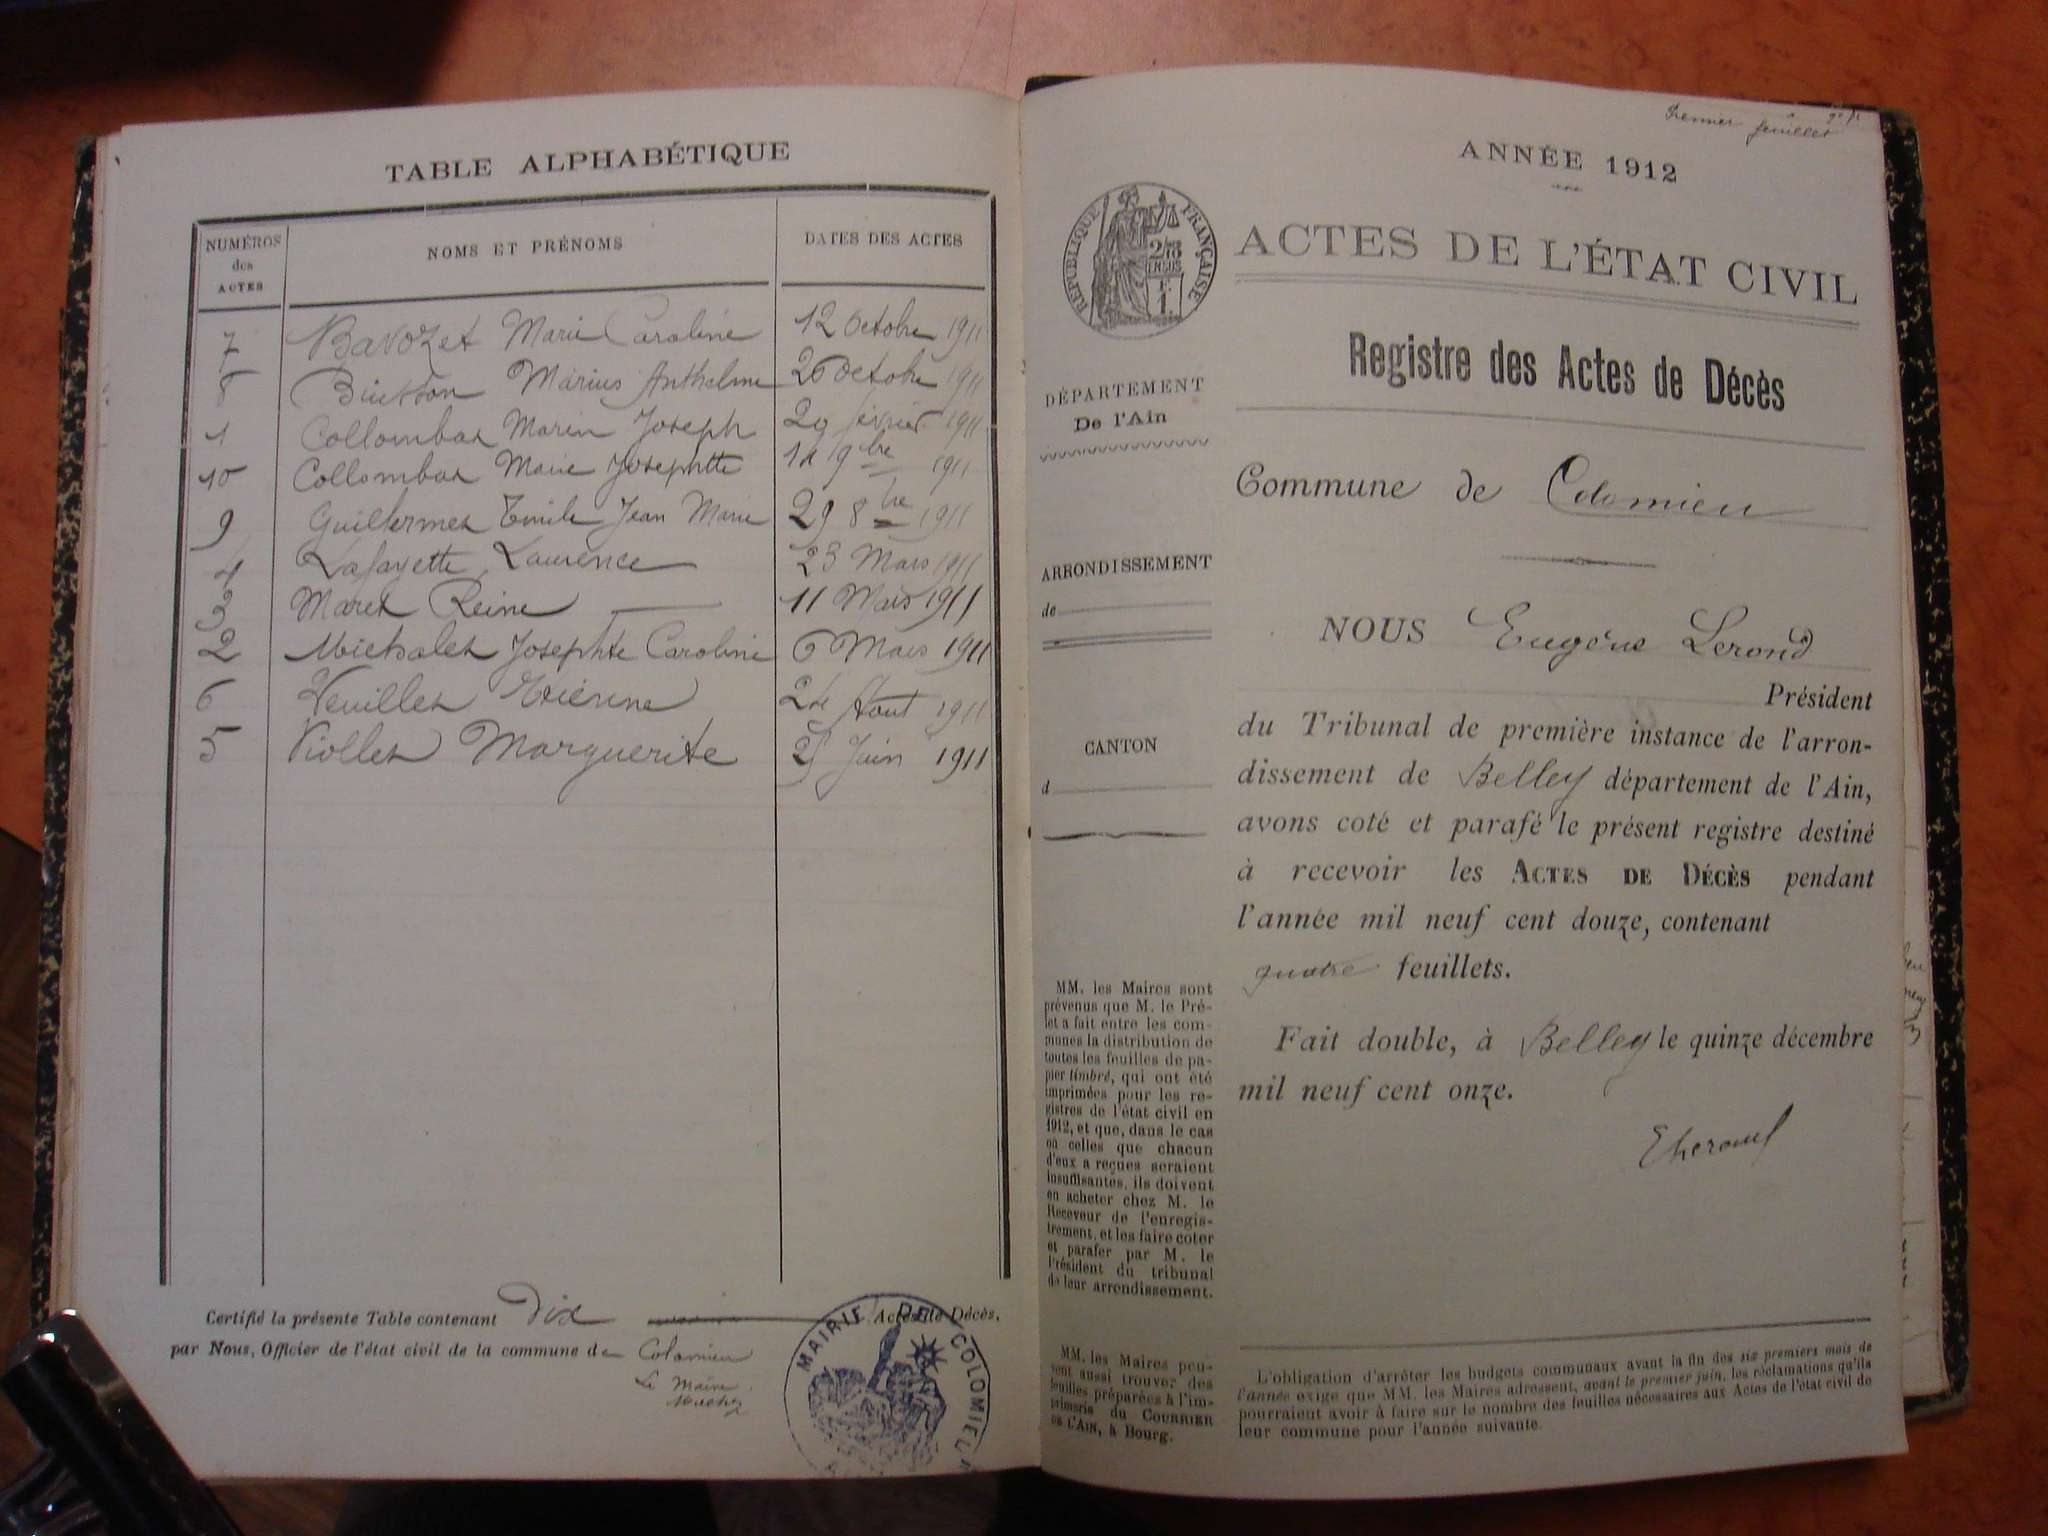 TABLE ALPHABÉTIQUE
NUMÉROS des ACTES NOMS ET PRÉNOMS DATES DES ACTES
7 Bavozet Marie Caroline 12 Octobre 1911
8 Buisson Marius Anthelme 26 octobre 1911
1 Collombat Marin Joseph 29 février 1911
10 Collombat Marie Josephtte 9bre 1911
9 Guillermet Emile Jean Marie 29 8bre 1911
4 Lafayette Laurence 23 Mars 1911
3 Maret Reine 11 Mars 1911
2 Michalet Josephte Caroline 6 Mars 1911
6 Veuillet Etienne 24 Aout 1911
5 Viollet Marguerite Juin 1911
Certifié la présente Table contenant Dix Actes de Décès,
par Nous, Officier de l'état civil de la commune de Colomieu
Le Maire
MAIRIE DE COLOMIEU
Premier feuillet
ANNÉE 1912
RÉPUBLIQUE FRANÇAISE
ACTES DE L'ÉTAT CIVIL
Registre des Actes de Décès
DÉPARTEMENT
De l'Ain
Commune de Colomieu
ARRONDISSEMENT
de
NOUS Eugène Lerond
Président
du Tribunal de première instance de l'arron-
dissement de Belley département de l'Ain,
avons coté et parafé le présent registre destiné
à recevoir les ACTES DE DÉCÈS pendant
l'année mil neuf cent douze, contenant
quatre feuillets.
Fait double, à Belley le quinze décembre
mil neuf cent onze.
CANTON
d
MM. les Maires sont
prévenus que M. le Pré-
fet a fait entre les com-
munes la distribution de
toutes les feuilles de pa-
pier timbré, qui ont été
imprimées pour les re-
gistres de l'état civil en
1912, et que, dans le cas
où celles que chacun
d'eux a reçues seraient
insuffisantes, ils doivent
en acheter chez M. le
Receveur de l'enregis-
trement, et les faire coter
et parafer par M. le
Président du tribunal
de leur arrondissement.
MM. les Maires peu-
vent aussi trouver des
feuilles préparées à l'im-
primerie du COURRIER
DE L'AIN, à Bourg.
L'obligation d'arrêter les budgets communaux avant la fin des six premiers mois de
l'année exige que MM. les Maires adressent, avant le premier juin, les réclamations qu'ils
pourraient avoir à faire sur le nombre des feuilles nécessaires aux Actes de l'état civil de
leur commune pour l'année suivante.